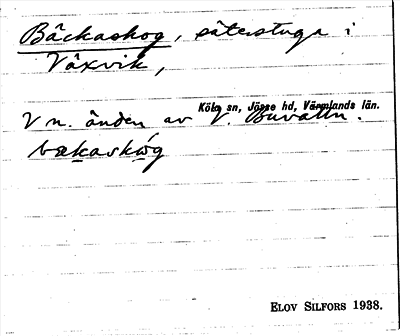 Bäckaskog, säterstuga i
Växvik,
Köla sn, Jösse hd, Värmlands län.
V n. änden av V. Buvattn.
bækaskóg
ELOV SILFORS 1938.